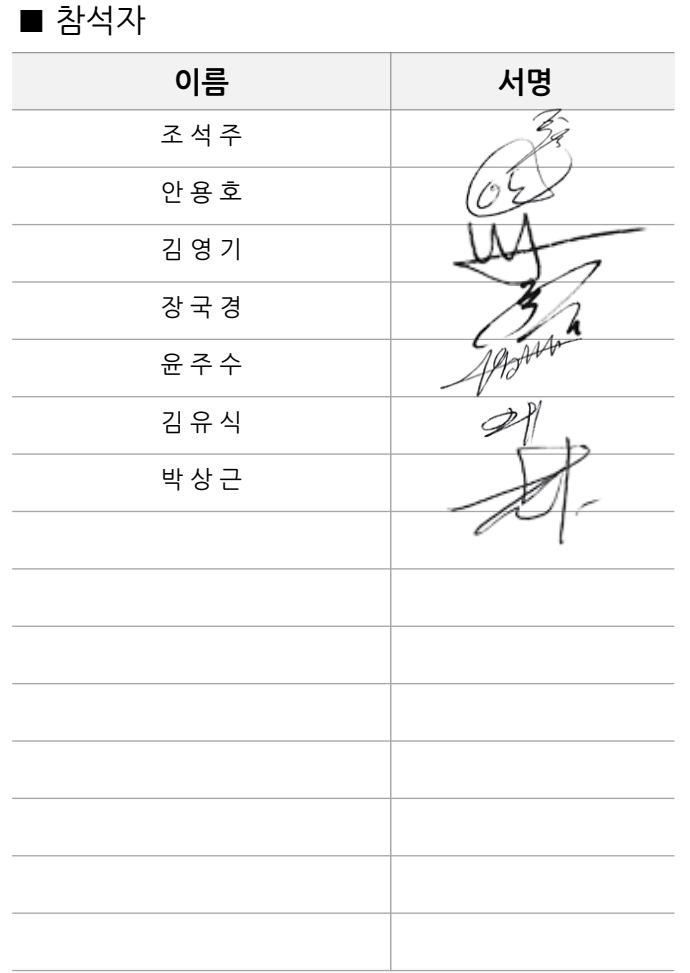 ■ 참석자
이름 서명
조 석 주
안 용 호
김 영 기
장 국 경
윤 주 수
김 유 식
박 상 근